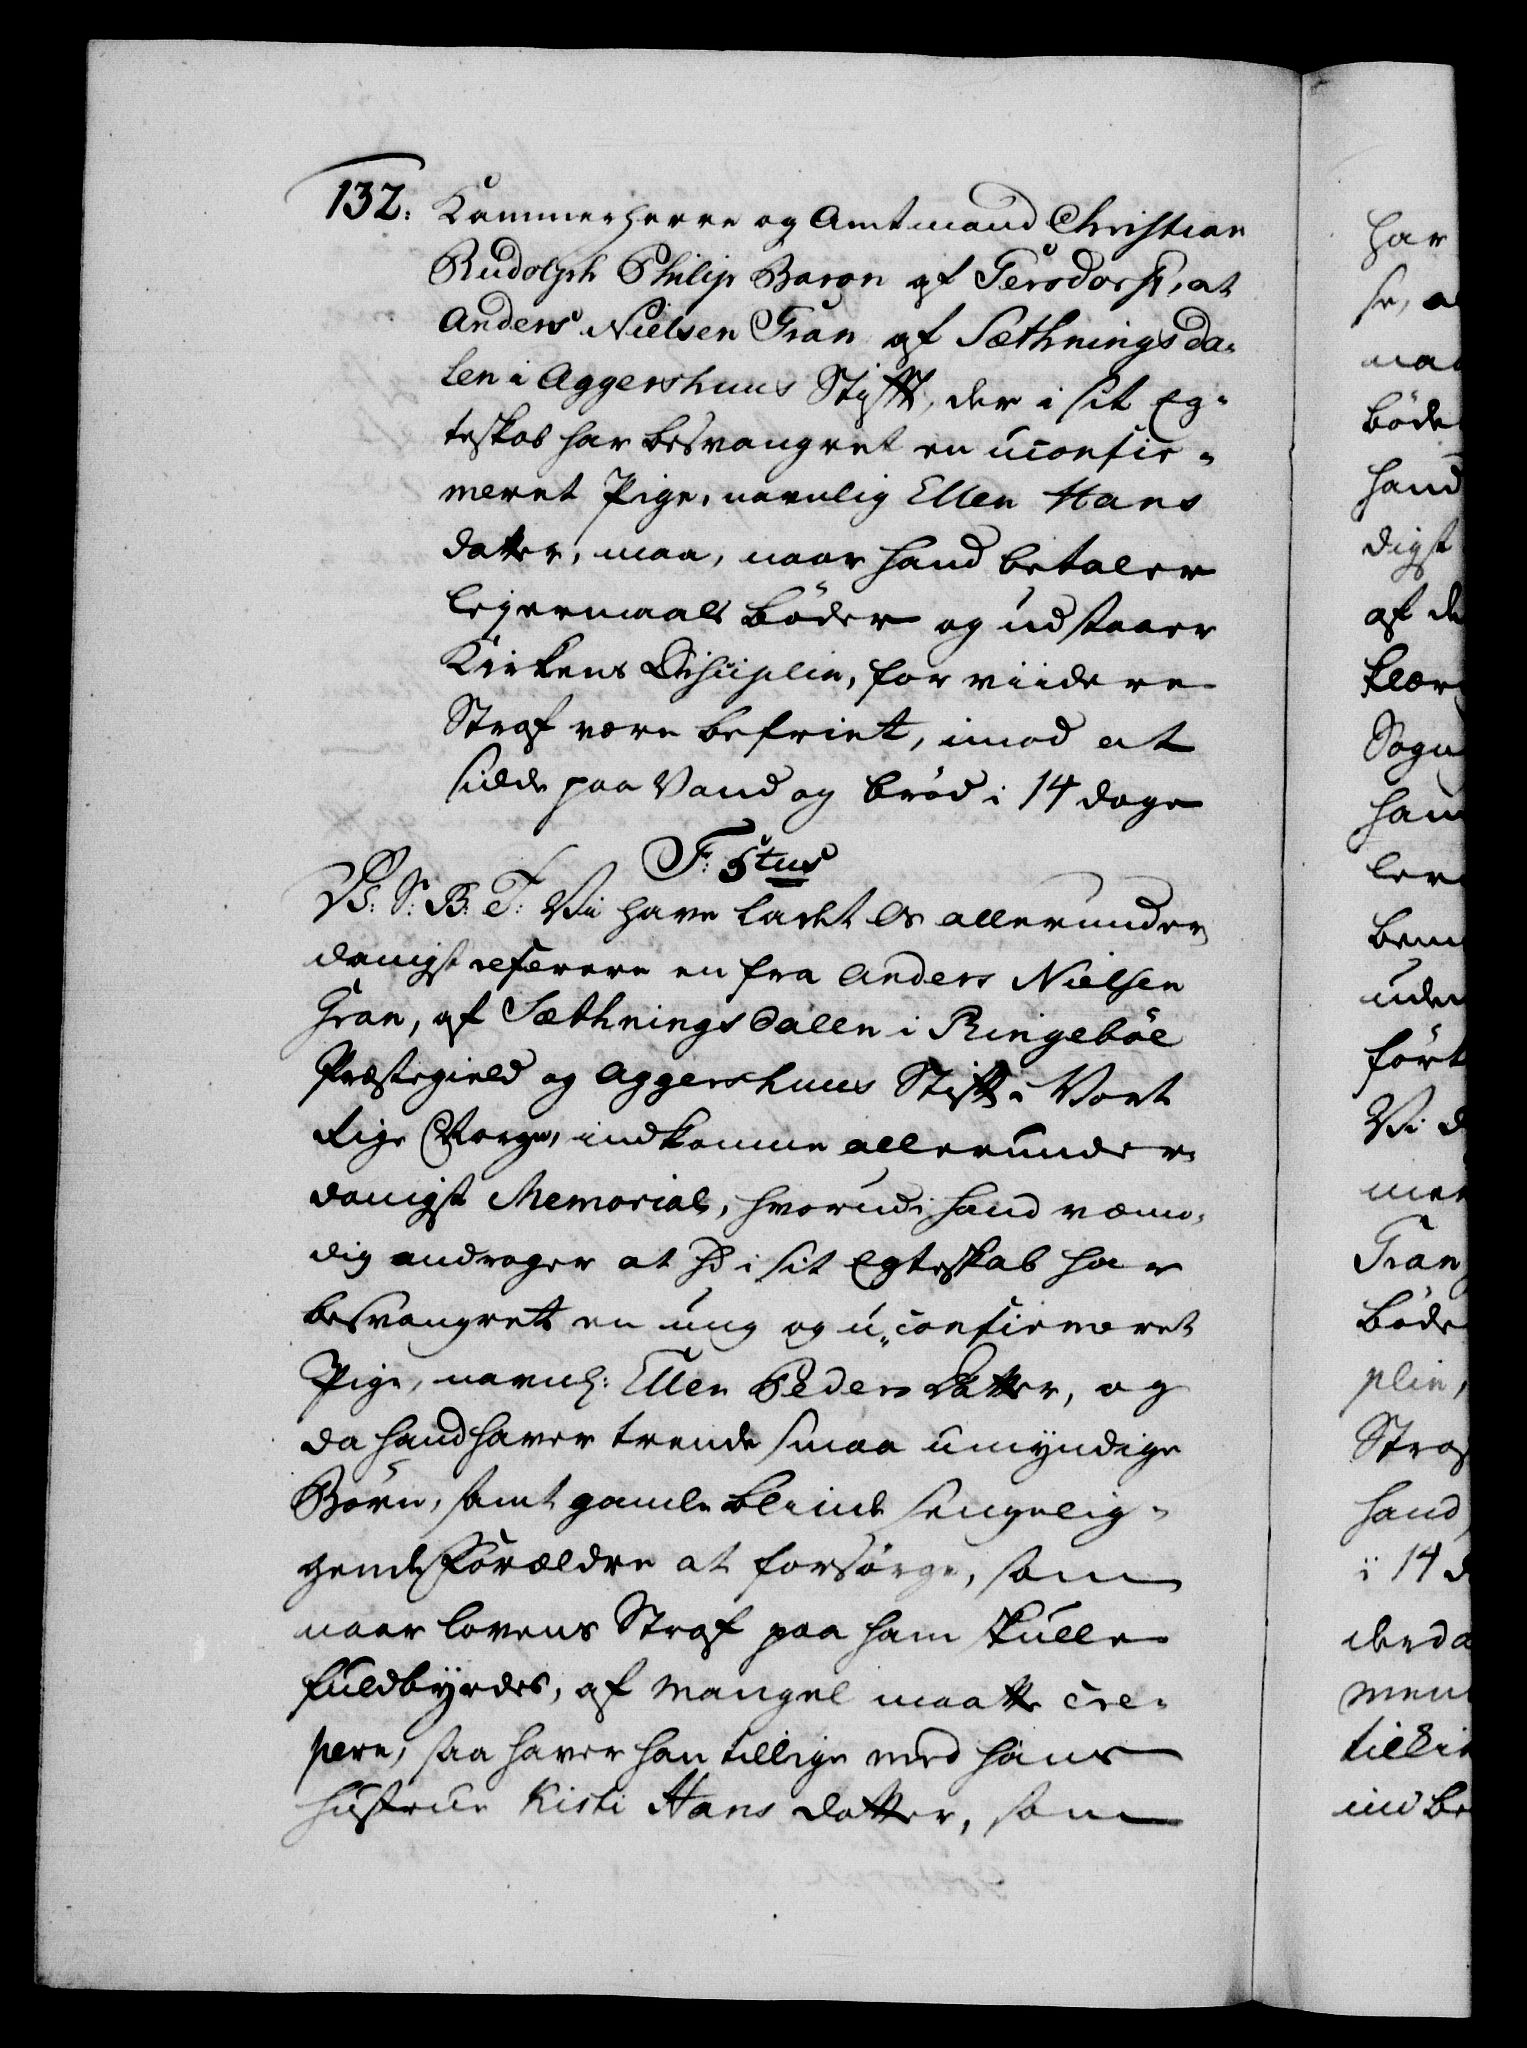 132. Kammerherre og Amtmand Christian
Rudolph Philip Baron af Gersdorff, at
Anders Nielsen Gran af Sæthningsda-
len i Aggershuus Stifft, der i sit Eg-
teskab har besvangret en uconfir-
meret Pige, navnlig Ellen Hans
datter, maa, naar hand betaler
lejermaals Böder og udstaaer
Kirkens Disciplin, for viidere
Straf være befriet, imod at
sidde paa Vand og Bröd i 14 dage
F: 5tus
V: S: B: T: Vi have ladet Os allerunder
danigst referere en fra Anders Nielsen
Gran, af Sæthningsdallen i Ringeböe
Præstegield og Aggershuus Stifft i Vort
Rige Norge, indkomne allerunder-
danigst Memorial, hvorudi hand vemo-
dig andrager at hd i sit Egteskab har
besvangret en ung og u-confirmeret
Pige, navnl: Ellen Peders Datter, og
da hand haver trende smaa umyndige
Börn, samt gamle blinde sengelig-
gende Forældre at forsörge, som
naar lovens Straf paa ham skulle
fuldbyrdes, af mangel maatte cre-
pere, saa haver han tillige med hans
Hustrue Kisti Hans datter, som
har
se,
böde
hand
digst
af de
klær
Sogn
ham
bem
uden
fört
Vi d
men
Gran
böde
plin,
Straf
hand
i 14 d